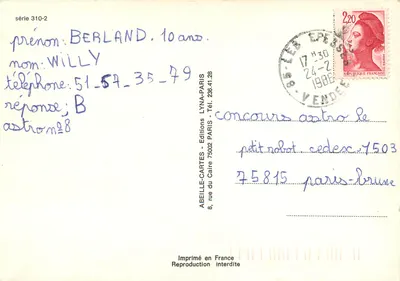 série 310-2
prénom: BERLAND. 10 ans.
nom: WILLY
téléphone: 51-57-35-79
réponse; B
astro n°8
ABEILLE-CARTES - Editions LYNA-PARIS
8, rue du Caire 75002 PARIS - Tél. 236.41.28
85 - LES EPESSES
17 H 30
24-2
1986
VENDEE
2,20
concours astro le
petit robot. cedex 1503
75815 paris-brune
Imprimé en France
Reproduction interdite